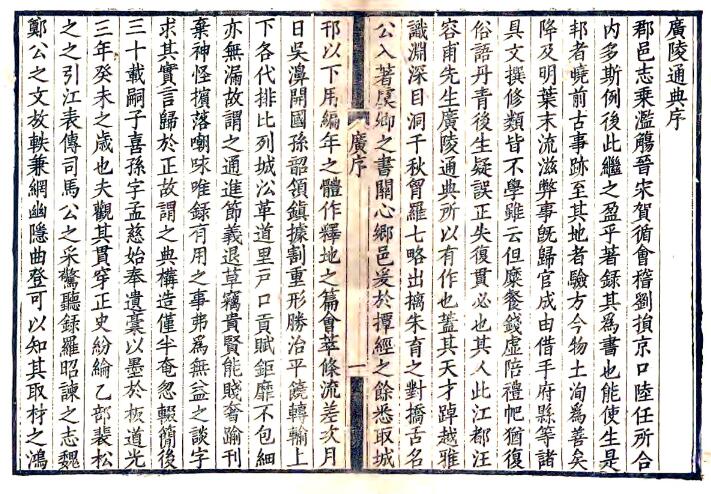 廣陵通典序
郡邑志乘濫觴晉宋賀循會稽劉損京口陸任所合
内多斯例後此繼之盈乎著録其爲書也能使生是
邦者曉前古事跡至其地者驗方今物土洵爲善矣
降及明葉末流滋弊事旣歸官成由借手府縣等諸
具文撰修類皆不學雖云但糜餐錢虚陪禮帊猶復
俗語丹青後生疑誤正失復貫必也其人此江都汪
容甫先生廣陵通典所以有作也蓋其天才踔越雅
識淵深目洞千秋胷羅七略出摛朱育之對撟舌名
公入著虞卿之書關心鄉邑爰於撢經之餘悉取城
廣序
一
邗以下用編年之體作釋地之篇會萃條流差次月
日吳濞開國孫韶領鎭據割重形勝治平饒轉輸上
下各代排比列城㳂革道里戸口貢賦鉅靡不包細
亦無漏故謂之通進節義退草竊貴賢能賤奢踰刊
棄神怪擯落嘲咏唯録有用之事弗爲無益之談字
求其實言歸於正故謂之典構造僅半奄忽輟簡後
三十載嗣子喜孫字孟慈始奉遺藁以墨於板道光
三年癸未之歳也夫觀其貫穿正史紛綸乙部裴松
之之引江表傳司馬公之采驚聽録羅昭諫之志魏
鄭公之文故軼兼網幽隱曲登可以知其取材之鴻